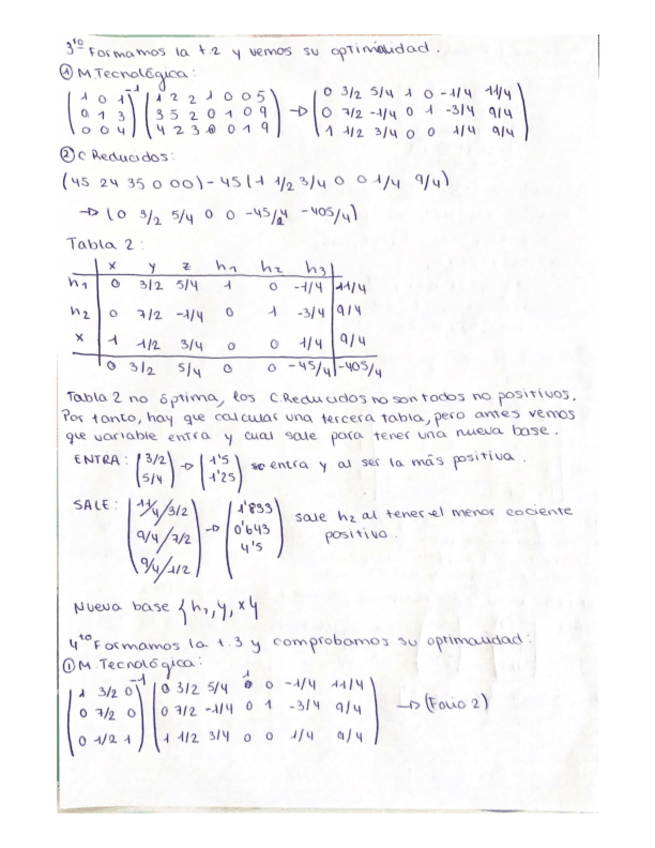 3ro Formamos la t.2 y vemos su optimalidad.
① M.Tecnológica:
(1 0 1)-1 (1 2 2 1 0 0 5) → (0 3/2 5/4 1 0 -1/4 11/4)
(0 1 3) (3 5 2 0 1 0 9) (0 7/2 -1/4 0 1 -3/4 9/4)
(0 0 4) (4 2 3 0 0 1 9) (1 1/2 3/4 0 0 1/4 9/4)
② C.Reducidos:
(45 24 35 0 0 0) - 45 (1 1/2 3/4 0 0 1/4 9/4)
→ (0 3/2 5/4 0 0 -45/4 -405/4)
Tabla 2:
x y z h1 h2 h3
h1 0 3/2 5/4 1 0 -1/4 11/4
h2 0 7/2 -1/4 0 1 -3/4 9/4
x 1 1/2 3/4 0 0 1/4 9/4
0 3/2 5/4 0 0 -45/4 -405/4
Tabla 2 no óptima, los C.Reducidos no son todos no positivos.
Por tanto, hay que calcular una tercera tabla, pero antes vemos
que variable entra y cual sale para tener una nueva base.
ENTRA: (3/2) → (1'5) entra y al ser la más positiva.
(5/4) (1'25)
SALE: (11/4/3/2) → (1'833) sale h2 al tener el menor cociente
(9/4/7/2) (0'643) positivo.
(9/4/1/2) (4'5)
Nueva base {h1, y, x}
4to Formamos la t.3 y comprobamos su optimalidad:
① M.Tecnológica:
(1 3/2 0)-1 (0 3/2 5/4 1 0 -1/4 11/4)
(0 7/2 0) (0 7/2 -1/4 0 1 -3/4 9/4) → (Folio 2)
(0 1/2 1) (1 1/2 3/4 0 0 1/4 9/4)